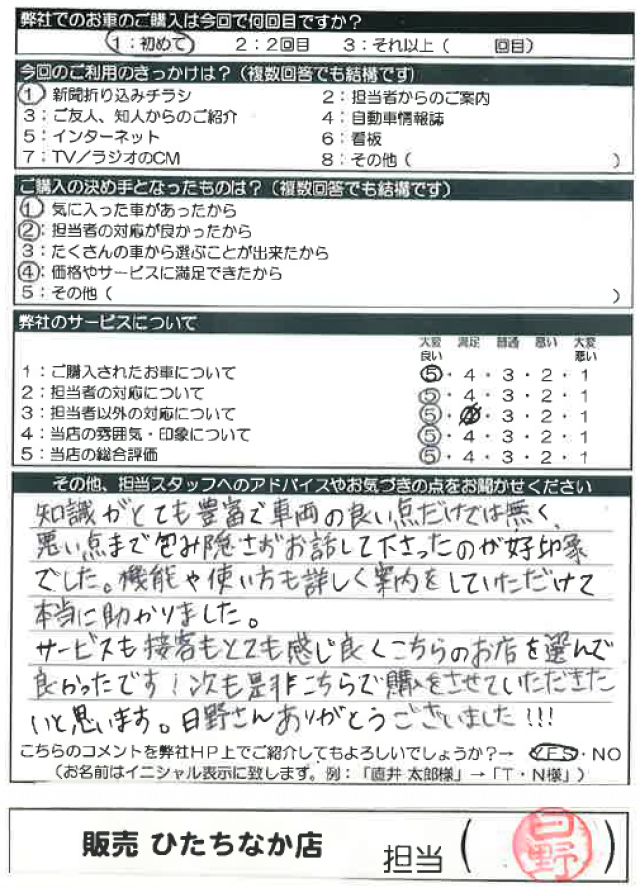 弊社でのお車のご購入は今回で何回目ですか?
1:初めて 2:2回目 3:それ以上( 回目)
今回のご利用のきっかけは?(複数回答でも結構です)
1:新聞折り込みチラシ 2:担当者からのご案内
3:ご友人、知人からのご紹介 4:自動車情報誌
5:インターネット 6:看板
7:TV/ラジオのCM 8:その他( )
ご購入の決め手となったものは?(複数回答でも結構です)
1:気に入った車があったから
2:担当者の対応が良かったから
3:たくさんの車から選ぶことが出来たから
4:価格やサービスに満足できたから
5:その他( )
弊社のサービスについて
大変良い 満足 普通 悪い 大変悪い
1:ご購入されたお車について 5・4・3・2・1
2:担当者の対応について 5・4・3・2・1
3:担当者以外の対応について 5・4・3・2・1
4:当店の雰囲気・印象について 5・4・3・2・1
5:当店の総合評価 5・4・3・2・1
その他、担当スタッフへのアドバイスやお気づきの点をお聞かせください
知識がとても豊富で車両の良い点だけでは無く、
悪い点まで包み隠さずお話して下さったのが好印象
でした。機能や使い方も詳しく案内をしていただけて
本当に助かりました。
サービスも接客もとても感じ良くこちらのお店を選んで
良かったです!次も是非こちらで購入をさせていただきた
いと思います。日野さんありがとうございました!!!
こちらのコメントを弊社HP上でご紹介してもよろしいでしょうか?→ YES・NO
(お名前はイニシャル表示に致します。例:「直井 太郎様」→「T・N様」)
販売 ひたちなか店 担当( 日野 )